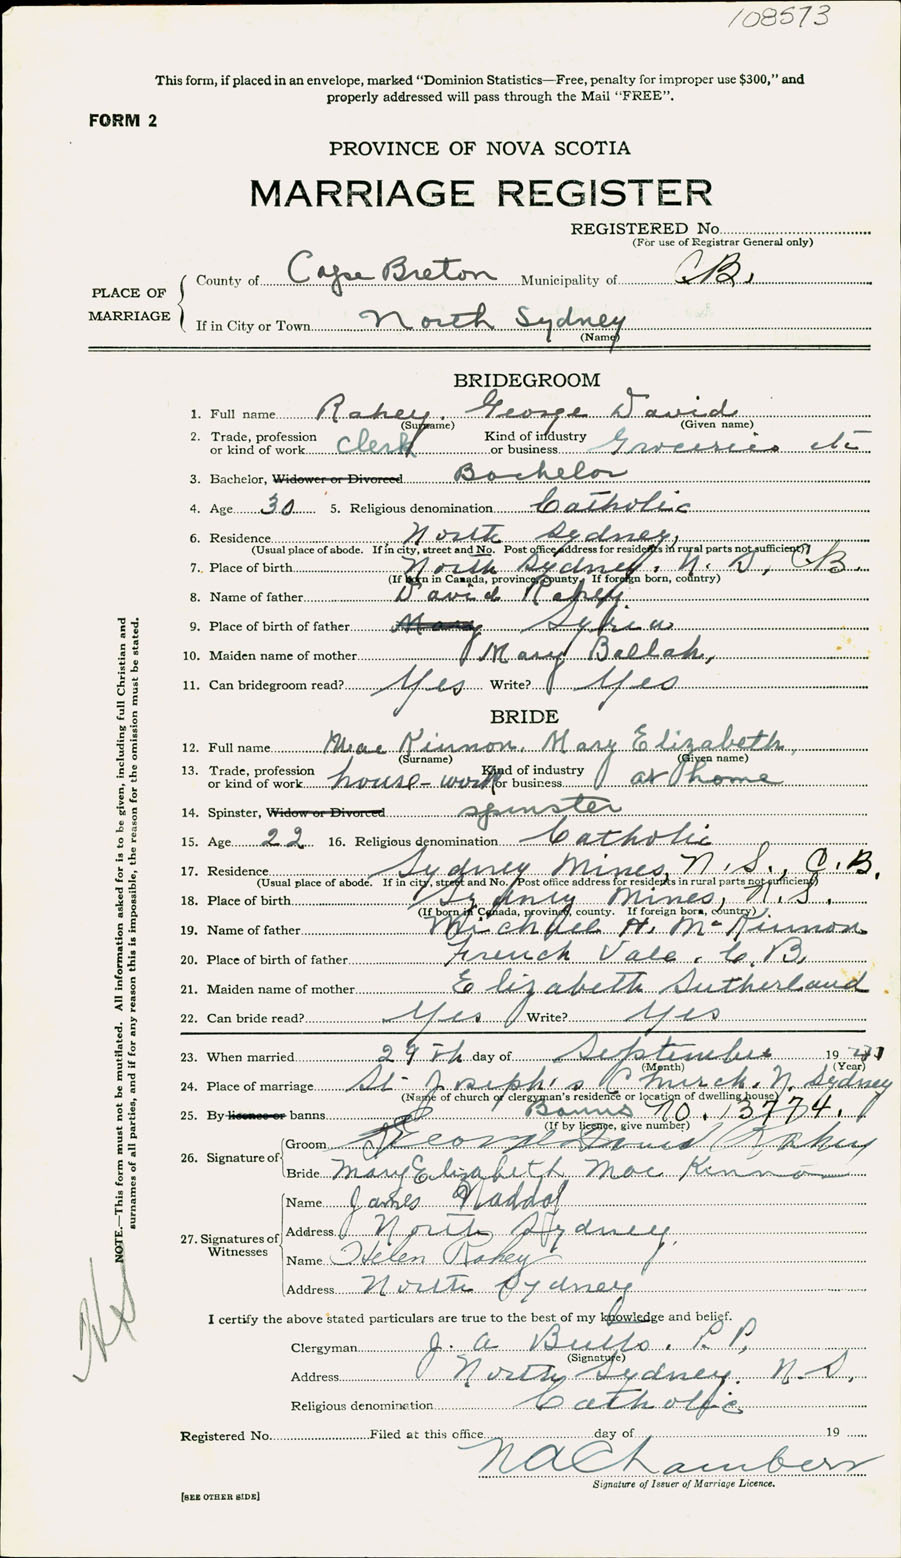 108573
This form, if placed in an envelope, marked "Dominion Statistics—Free, penalty for improper use $300," and
properly addressed will pass through the Mail "FREE".
FORM 2
PROVINCE OF NOVA SCOTIA
MARRIAGE REGISTER
REGISTERED No.
(For use of Registrar General only)
PLACE OF MARRIAGE
County of Cape Breton Municipality of C.B.
If in City or Town North Sydney
(Name)
BRIDEGROOM
1. Full name Rahey. George David
(Surname) (Given name)
2. Trade, profession or kind of work clerk Kind of industry or business Groceries etc
3. Bachelor, Widower or Divorced Bachelor
4. Age 30 5. Religious denomination Catholic
6. Residence North Sydney,
(Usual place of abode. If in city, street and No. Post office address for residents in rural parts not sufficient)
7. Place of birth North Sydney. N. S, C.B.
(If born in Canada, province, county. If foreign born, country)
8. Name of father David Rahey
9. Place of birth of father Syria
10. Maiden name of mother Mary Ballah,
11. Can bridegroom read? Yes Write? Yes
BRIDE
12. Full name Mac Kinnon. Mary Elizabeth,
(Surname) (Given name)
13. Trade, profession or kind of work house-work Kind of industry or business at home
14. Spinster, Widow or Divorced spinster
15. Age 22 16. Religious denomination Catholic
17. Residence Sydney Mines, N.S., C.B.
(Usual place of abode. If in city, street and No. Post office address for residents in rural parts not sufficient)
18. Place of birth Sydney Mines, N.S.
(If born in Canada, province, county. If foreign born, country)
19. Name of father Michael H. McKinnon
20. Place of birth of father French Vale. C.B.
21. Maiden name of mother Elizabeth Sutherland
22. Can bride read? Yes Write? Yes
23. When married 29th day of September 19
(Month) (Year)
24. Place of marriage St. Joseph's Church. N. Sydney
(Name of church or clergyman's residence or location of dwelling house)
25. By license or banns Banns No. 13774.
(If by licence, give number)
26. Signature of
Groom George David Rahey
Bride Mary Elizabeth Mac Kinnon
27. Signatures of Witnesses
Name James Naddaf
Address North Sydney.
Name Helen Rahey
Address North Sydney
I certify the above stated particulars are true to the best of my knowledge and belief.
Clergyman J. A. P.P.
(Signature)
Address North Sydney. N.S.
Religious denomination Catholic
Registered No. Filed at this office day of 19
N A Chambers
Signature of Issuer of Marriage Licence.
[SEE OTHER SIDE]
NOTE.—This form must not be mutilated. All information asked for is to be given, including full Christian and
surnames of all parties, and if for any reason this is impossible, the reason for the omission must be stated.